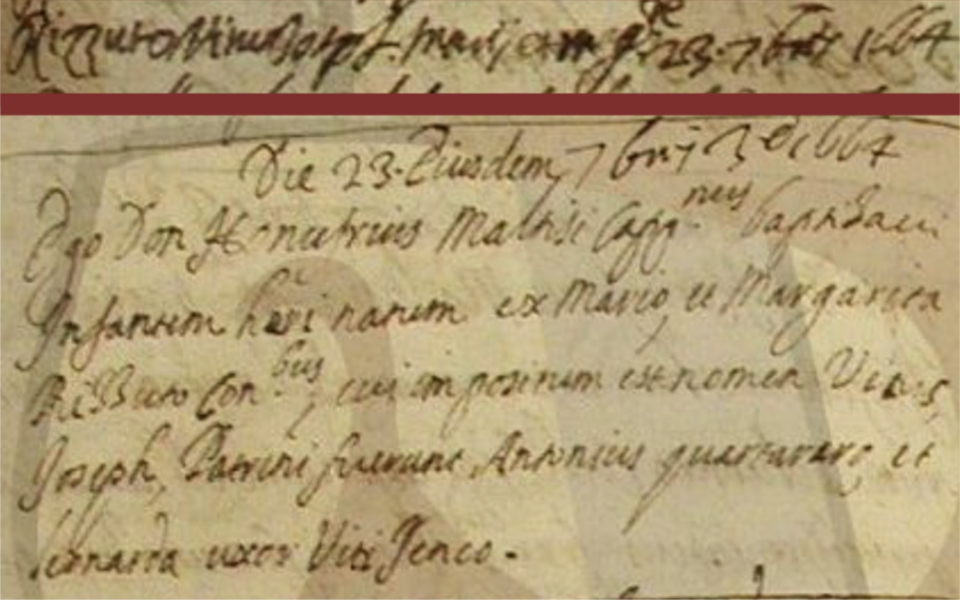 Rizzuto Vitus Joseph f. Marij et Marg.te 23. 7bris 1664
Die 23. Eiusdem 7bris 3e 1664
Ego Don Honufrius Maltisi Capp.neus baptizaui
Infantem heri natum ex Mario et Margarita
Rizzuto Con.bus, cui impositum est nomen Vitus,
Joseph, Patrini fuerunt Antonius quartararo et
leonarda uxor Viti Jenco.